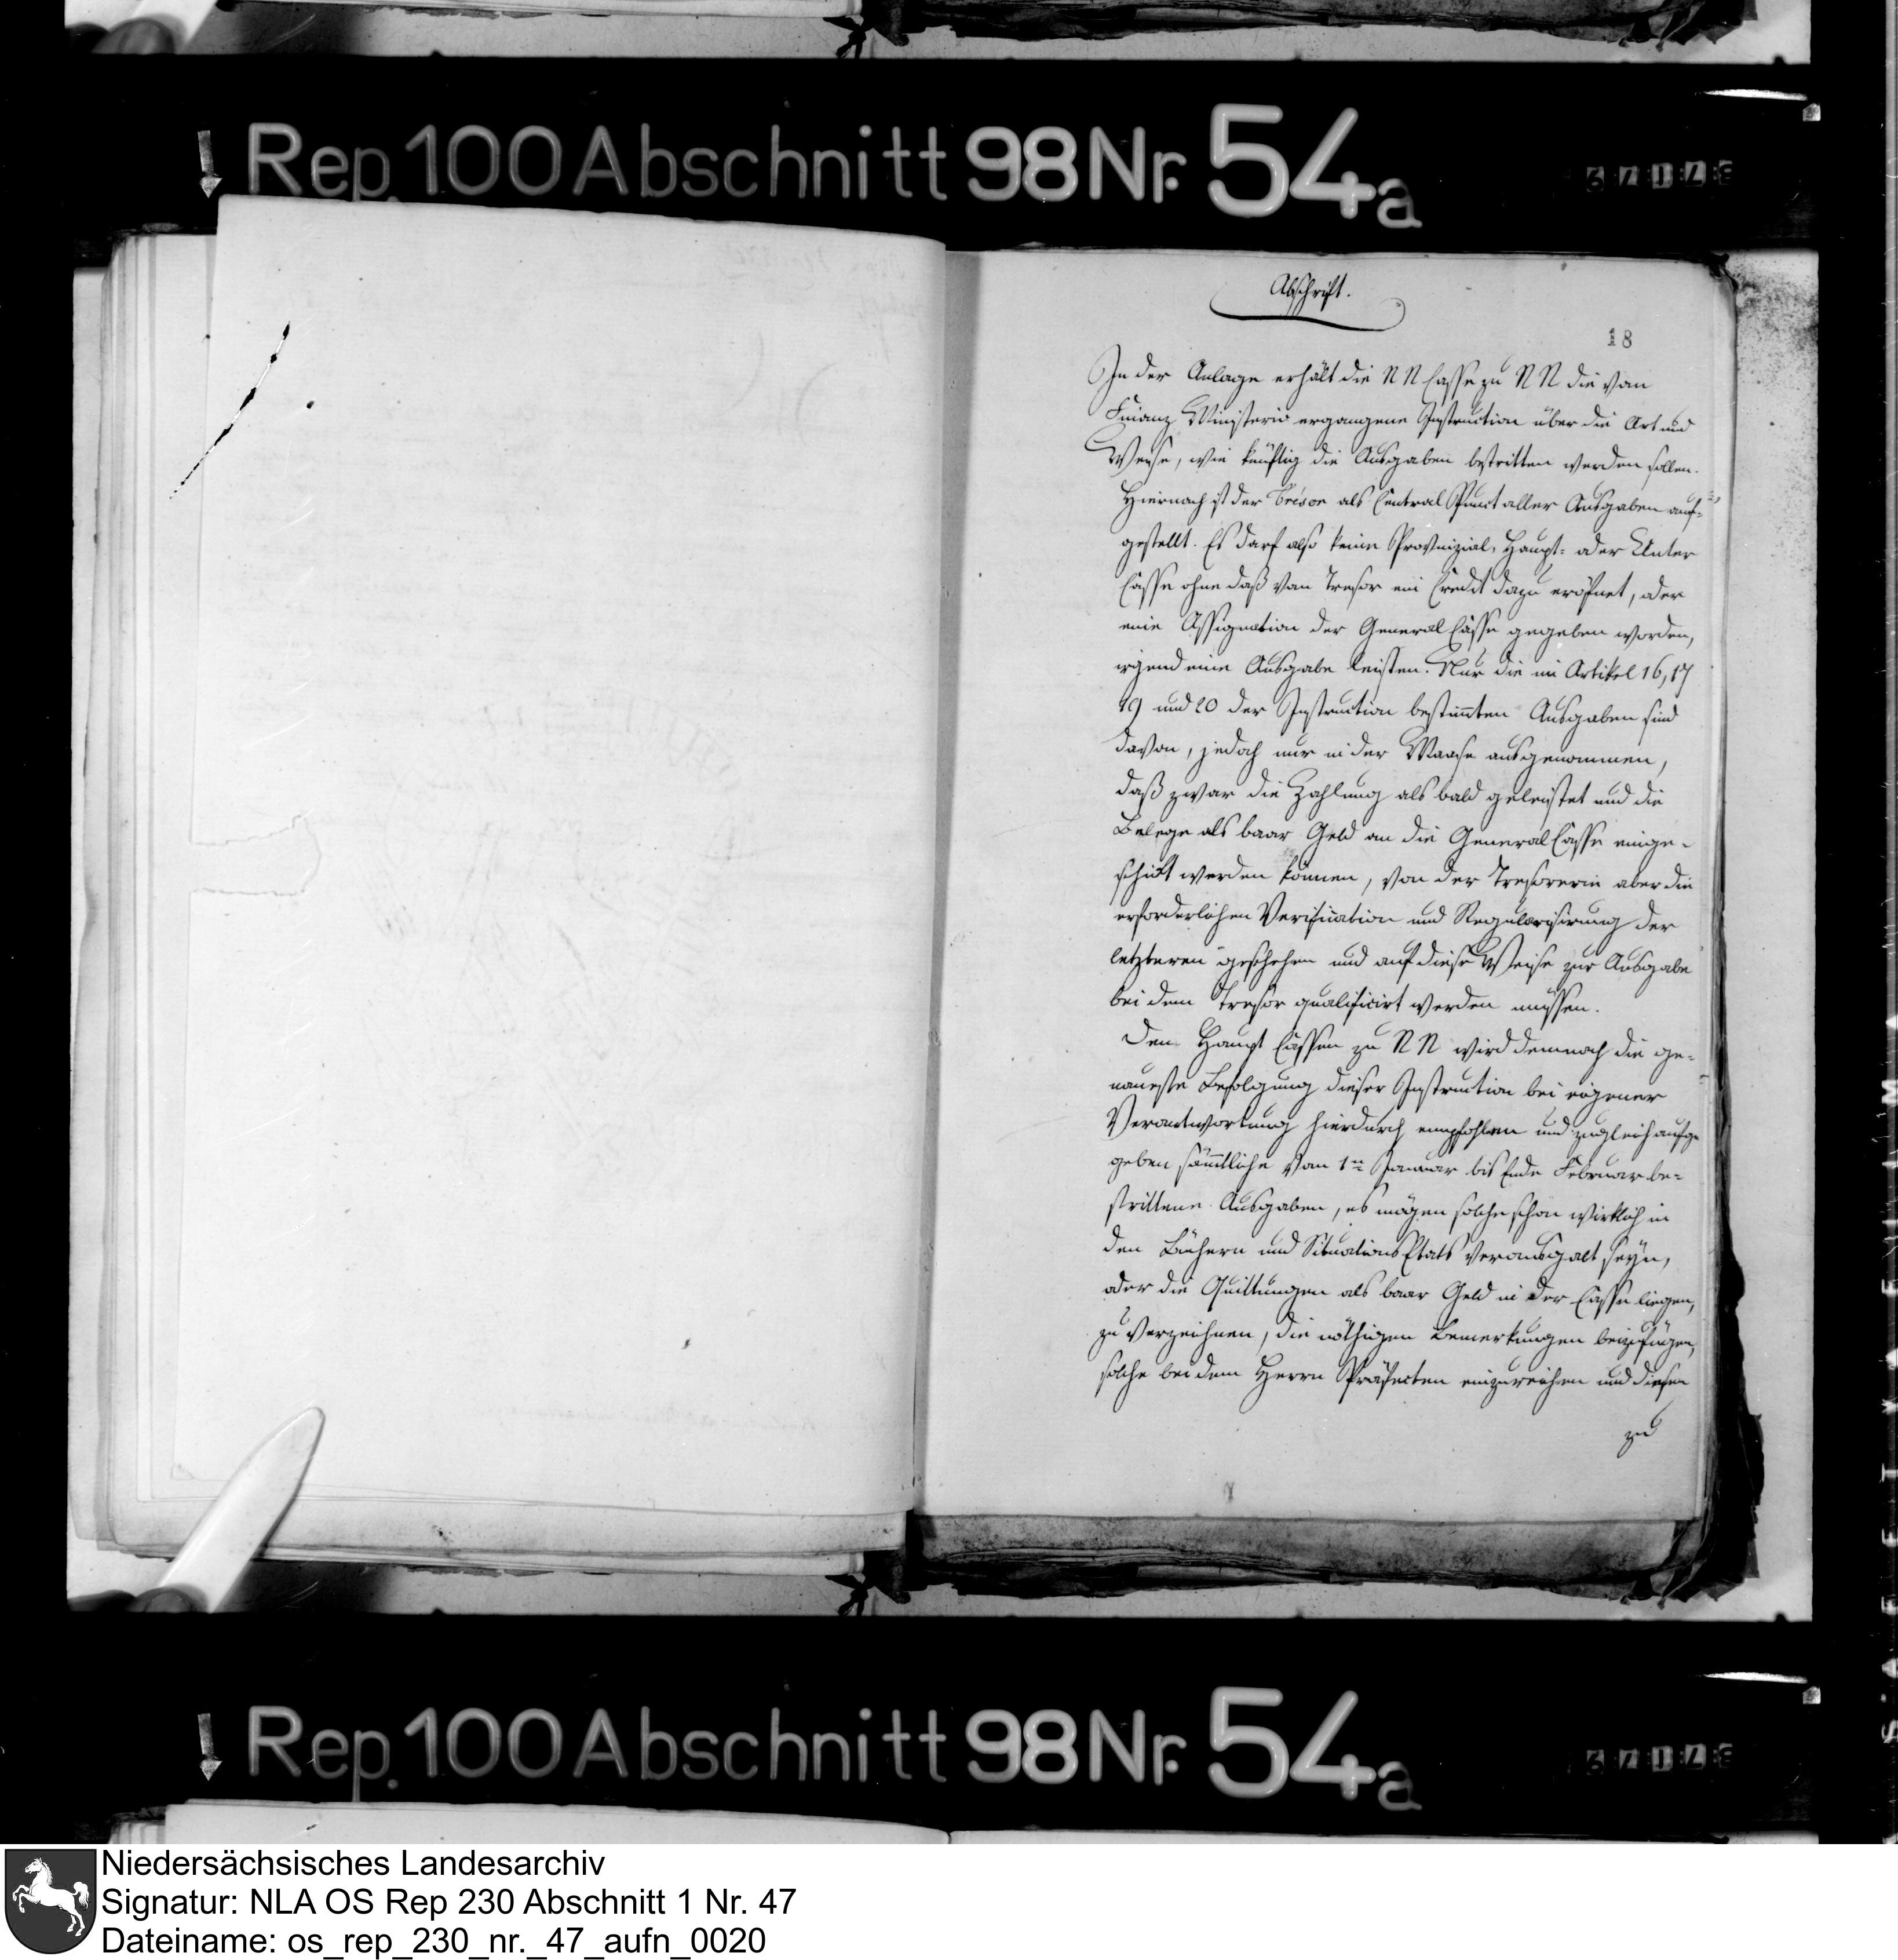 Rep. 100 Abschnitt 98 Nr. 54a
Abschrift.
18
In der Anlage erhält die N N Casse zu N N die vom
Finanz Ministerio ergangene Instruction über die Art und
Weise, wie künftig die Ausgaben bestritten werden sollen.
Hiernach ist der Trésor als Central Punct aller Ausgaben auf-
gestellt. Es darf also keine Provinzial, Haupt- oder Unter
Casse ohne daß vom Tresor ein Credit dazu eröfnet, oder
eine Assignation der General Casse gegeben worden,
irgend eine Ausgabe leisten. Nur die im Artikel 16, 17
19 und 20 der Instruction bestimten Ausgaben sind
davon, jedoch nur in der Maase ausgenommen,
daß zwar die Zahlung als bald geleistet und die
Belege als baar Geld an die General Casse einge-
schickt werden können, von der Tresorerie aber die
erforderlichen Verification und Regularisirung der
letzteren geschehen und auf diese Weise zur Ausgabe
bei dem Tresor qualificirt werden müssen.
Den Haupt Cassen zu N N wird demnach die ge-
naueste Befolgung dieser Instruction bei eigener
Verantwortung hierdurch empfohlen und zugleich aufge
geben sämtliche vom 1n Januar bis Ende Februar be-
strittene Ausgaben, es mögen solche schon wirklich in
den Büchern und Situations Etats verausgabt seyn,
oder die Quittungen als baar Geld in der Casse liegen,
zu verzeichnen, die nöthigen Bemerkungen beizufügen,
solche bei dem Herrn Präfecten einzureichen und diesen
zu
Rep. 100 Abschnitt 98 Nr. 54a
Niedersächsisches Landesarchiv
Signatur: NLA OS Rep 230 Abschnitt 1 Nr. 47
Dateiname: os_rep_230_nr._47_aufn_0020